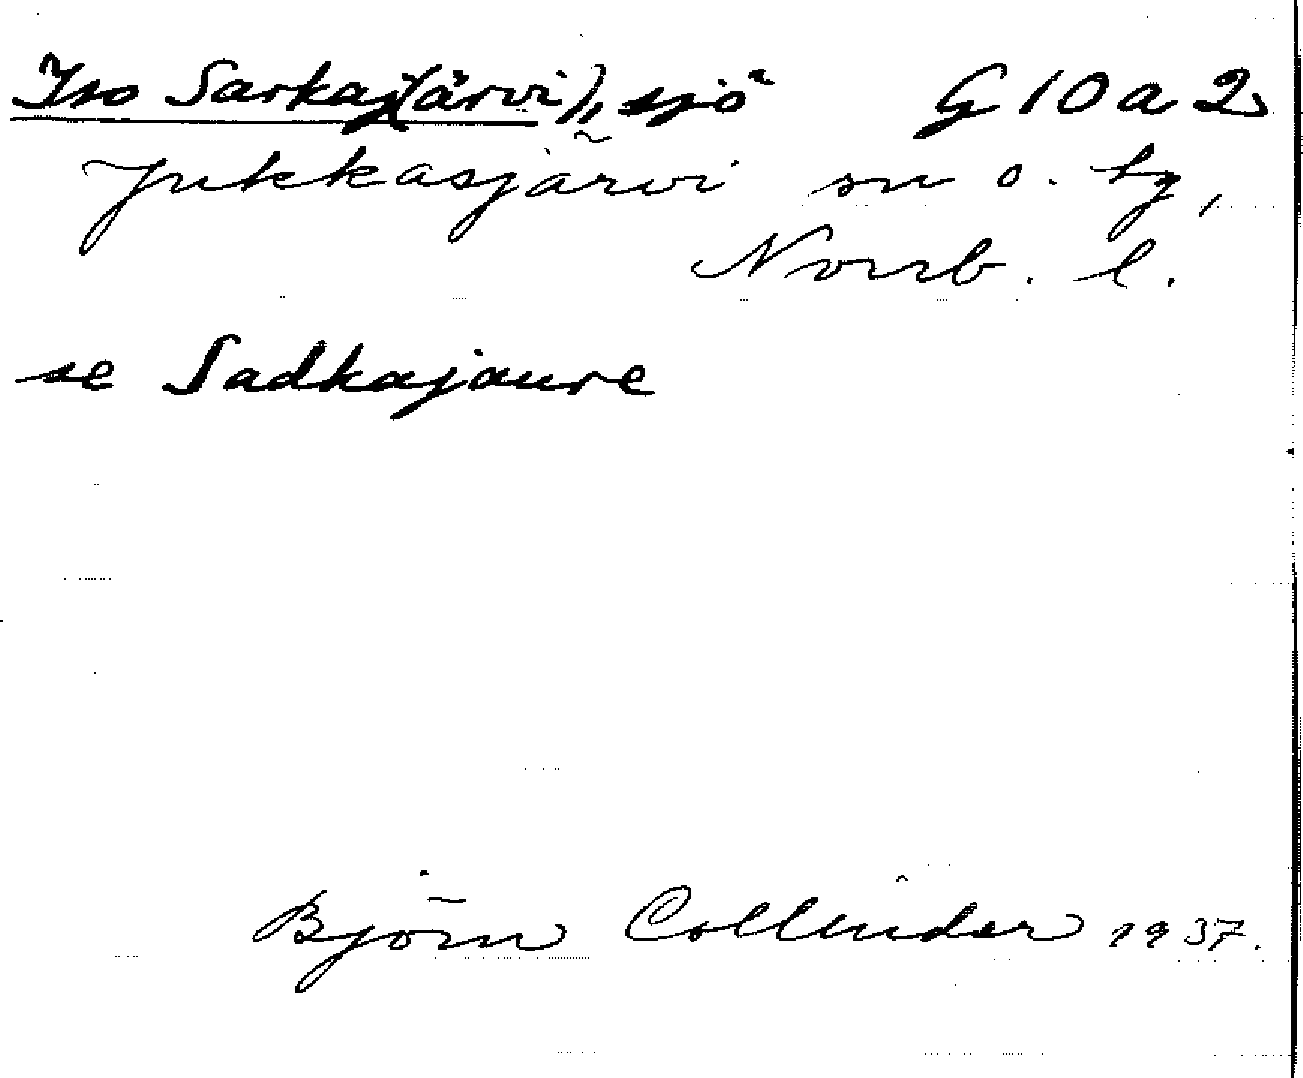 Iso Sarkaj(ärvi), sjö G 10 a 2
Jukkasjärvi sn o. tg,
Norrb. l.
se Sadkajaure
Björn Collinder 1937.